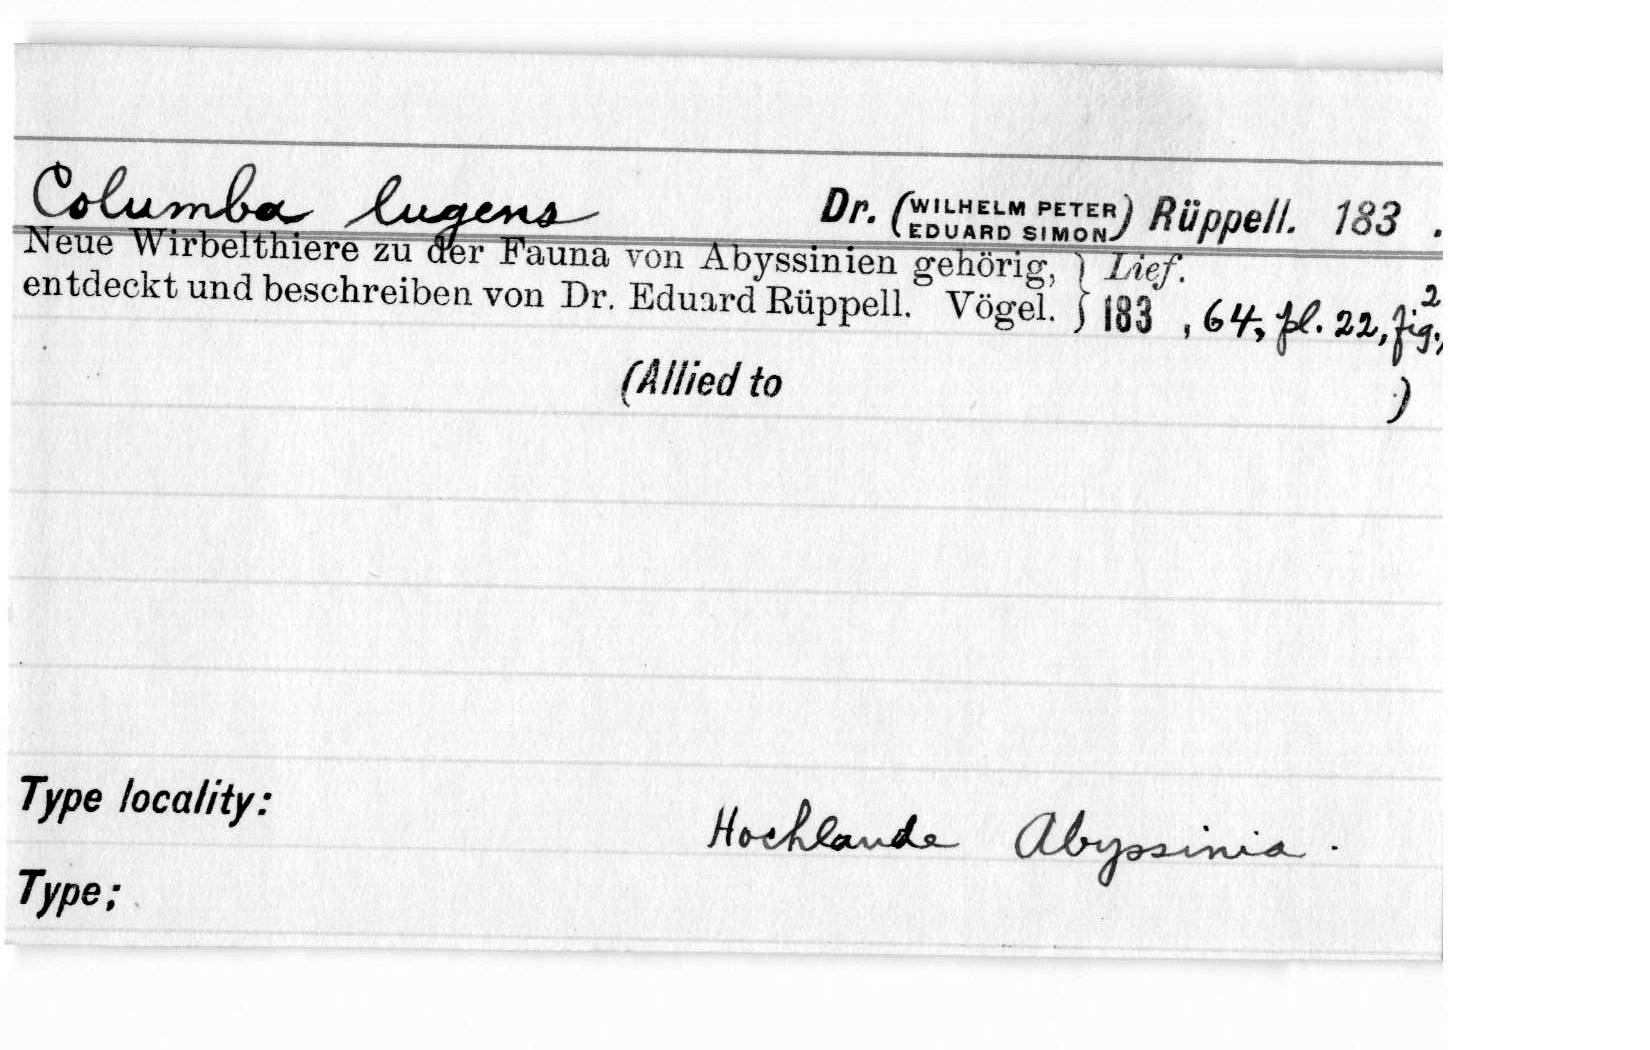 Columba lugens Dr. (WILHELM PETER EDUARD SIMON) Rüppell. 183 .
Neue Wirbelthiere zu der Fauna von Abyssinien gehörig, } Lief.
entdeckt und beschreiben von Dr. Eduard Rüppell. Vögel. } 183 , 64, pl. 22, fig. 2,
(Allied to )
Type locality: Hochlande Abyssinia.
Type: